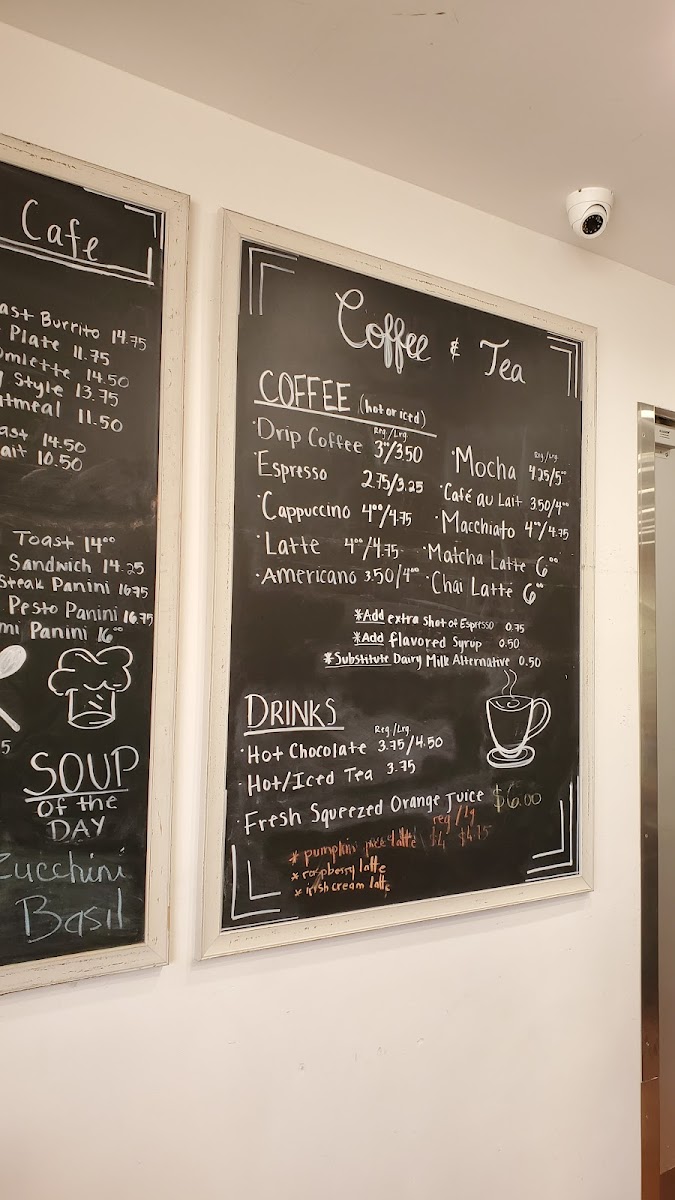 Cafe
ast Burrito 14.75
Plate 11.75
omlette 14.50
Style 13.75
atmeal 11.50
ast 14.50
ait 10.50
Toast 14.00
Sandwich 14.25
Steak Panini 16.75
Pesto Panini 16.75
mi Panini 16.00
5
SOUP
of the
DAY
Zucchini
Basil
Coffee & Tea
COFFEE (hot or iced)
Reg./Lrg.
Drip Coffee 3.00/3.50
Espresso 2.75/3.25
Cappuccino 4.00/4.75
Latte 4.00/4.75
Americano 3.50/4.00
Reg./Lrg.
Mocha 4.25/5.00
Café au Lait 3.50/4.00
Macchiato 4.00/4.75
Matcha Latte 6.00
Chai Latte 6.00
*Add extra shot of Espresso 0.75
*Add flavored Syrup 0.50
*Substitute Dairy Milk Alternative 0.50
DRINKS
Reg./Lrg.
Hot Chocolate 3.75/4.50
Hot/Iced Tea 3.75
Fresh Squeezed Orange Juice $6.00
reg/lg
* pumpkin spice latte $4 $4.75
* raspberry latte
* irish cream latte